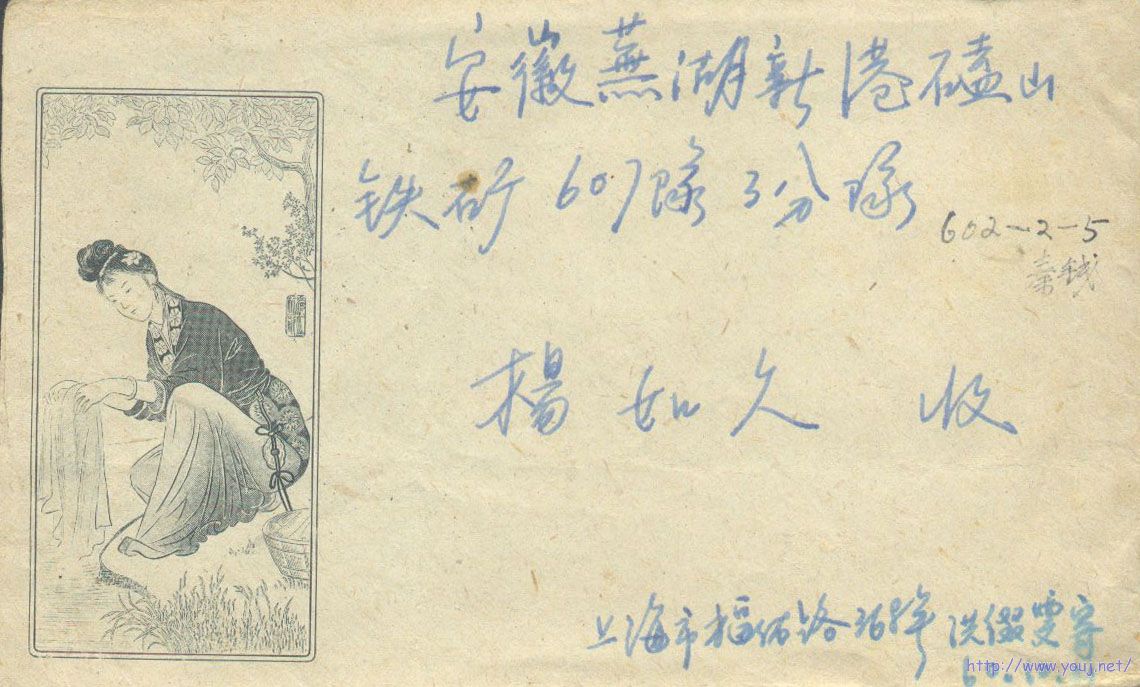 安徽蕪湖新港磕山
铁矿607隊3分隊
602-2-5
秦钱
楊如久 收
上海市福佑路
洪 雯寄
http://www.youj.net/